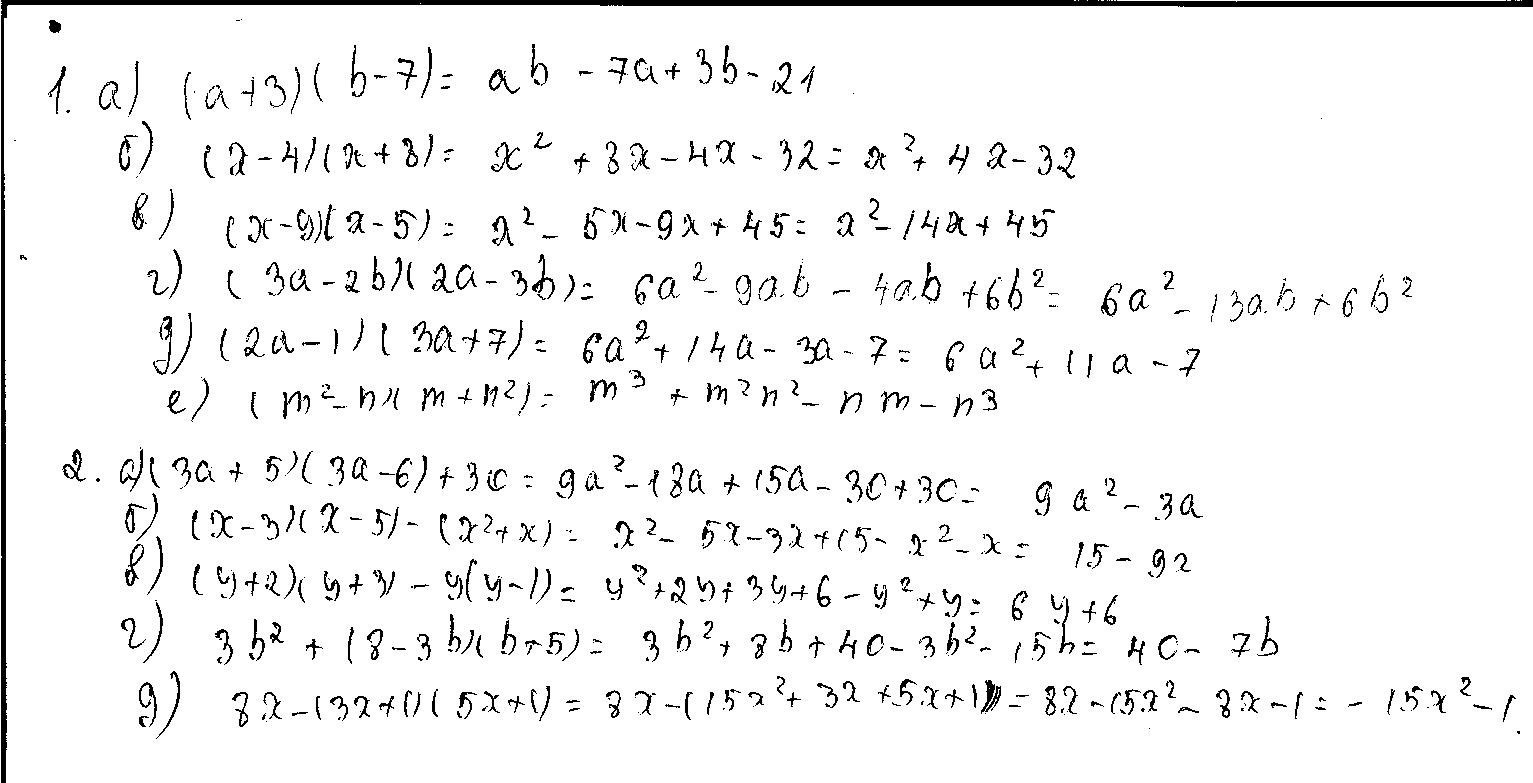 1. а) (a+3)(b-7)= ab -7a+3b-21
б) (x-4)(x+8)= x² +8x-4x-32= x²+4x-32
в) (x-9)(x-5)= x²-5x-9x+45= x²-14x+45
г) (3a-2b)(2a-3b)= 6a²-9ab-4ab+6b²= 6a²-13ab+6b²
д) (2a-1)(3a+7)= 6a²+14a-3a-7= 6a²+11a-7
е) (m²-n)(m+n²)= m³+m²n²-nm-n³
2. а) (3a+5)(3a-6)+30= 9a²-18a+15a-30+30= 9a²-3a
б) (x-3)(x-5)-(x²+x)= x²-5x-3x+15-x²-x= 15-9x
в) (y+2)(y+3)-y(y-1)= y²+2y+3y+6-y²+y= 6y+6
г) 3b²+(8-3b)(b+5)= 3b²+8b+40-3b²-15b= 40-7b
д) 8x-(3x+1)(5x+1)= 8x-(15x²+3x+5x+1)= 8x-15x²-8x-1= -15x²-1.